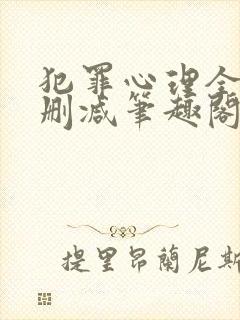 犯罪心理全
删减笔趣阁
提里昂蘭尼斯